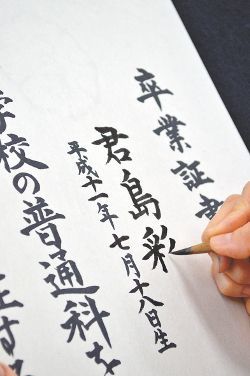 卒業証書
君島彩
平成十一年七月十八日生
学校の普通科を